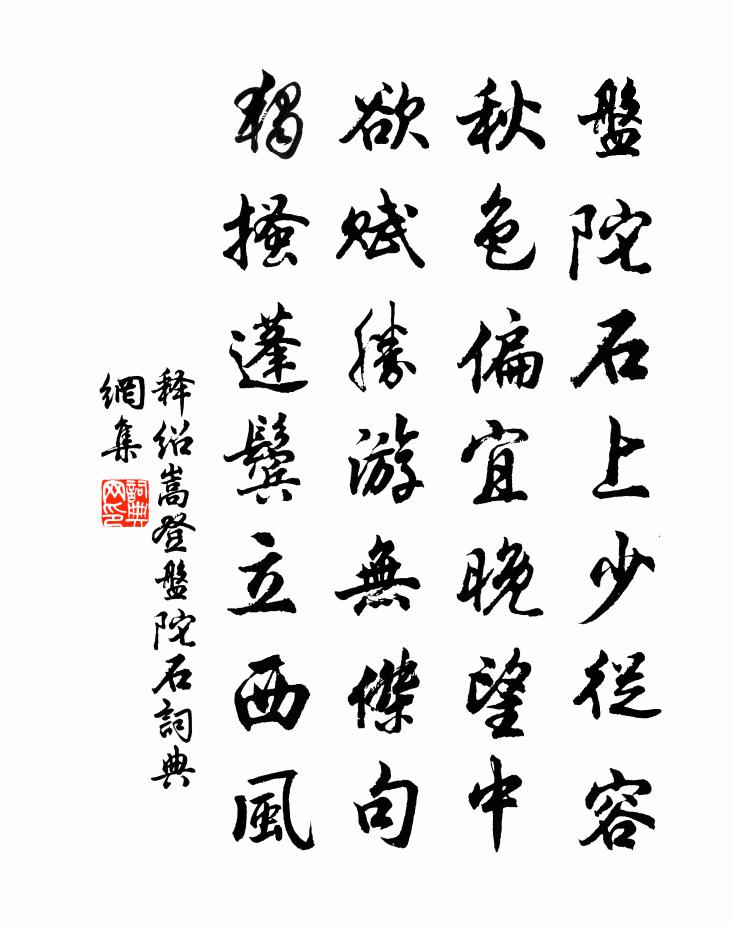 盤陀石上少從容
秋色偏宜晚望中
欲賦勝游無傑句
獨搔蓬鬢立西風
释绍嵩登盤陀石詞典
網集
詞典
网印